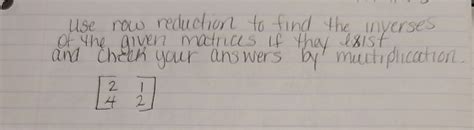 use row reduction to find the inverses
of the given matrices if they exist
and check your answers by multiplication.
2 1
4 2